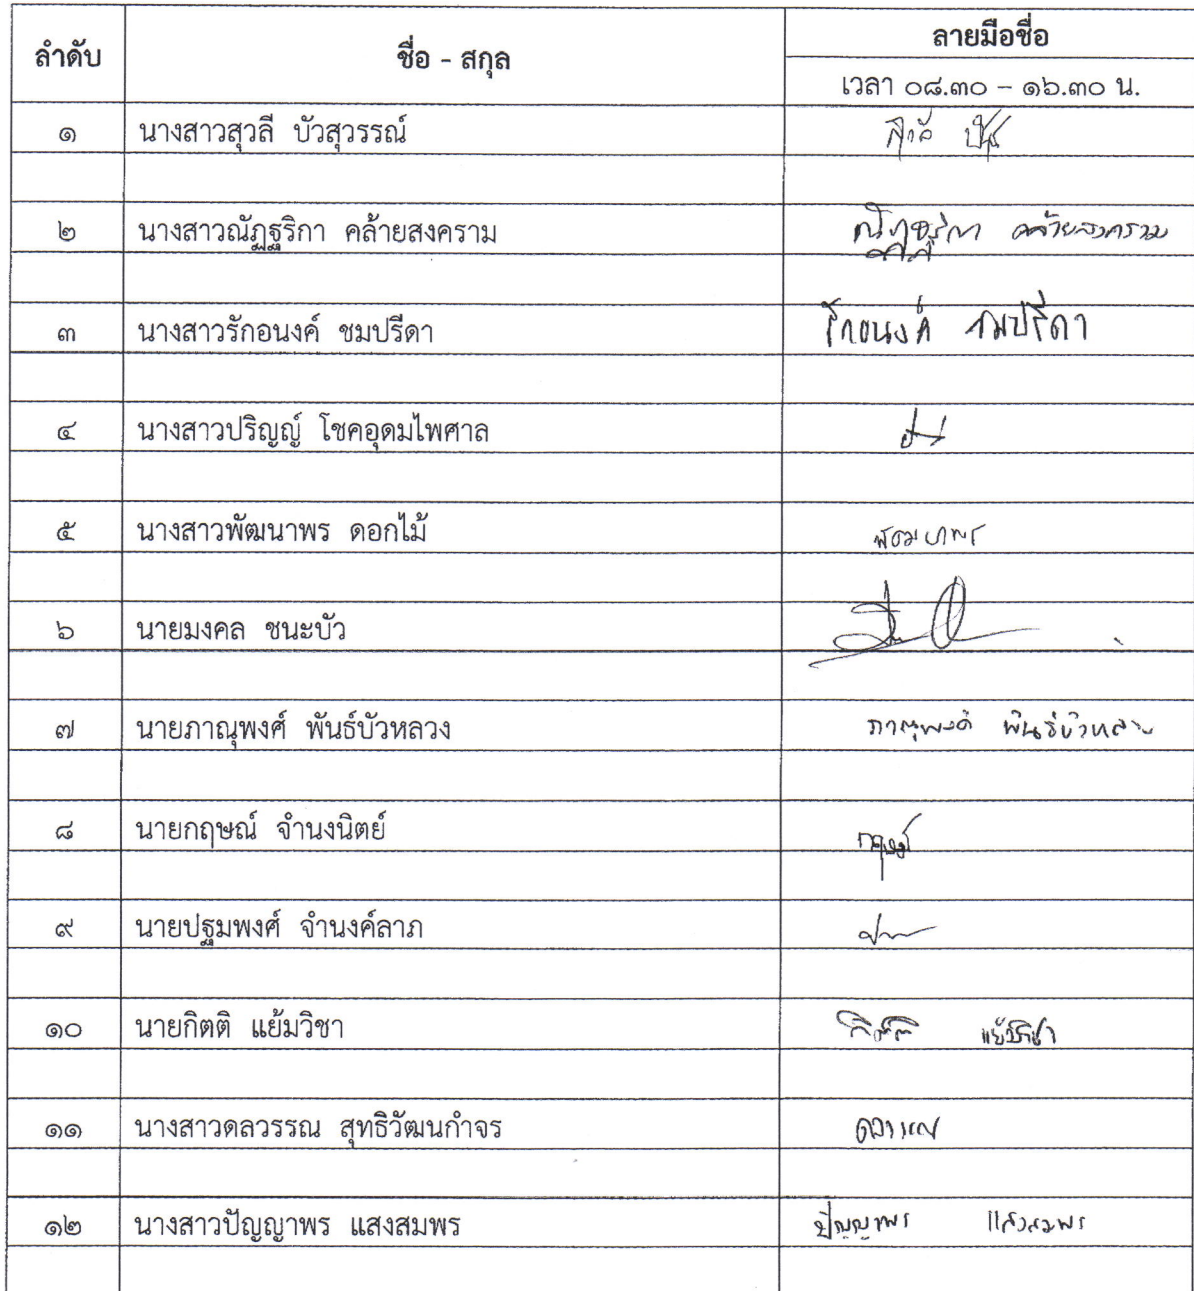 ลำดับ ชื่อ - สกุล ลายมือชื่อ
เวลา ๐๘.๓๐ – ๑๖.๓๐ น.
๑ นางสาวสุวลี บัวสุวรรณ์
๒ นางสาวณัฏฐริกา คล้ายสงคราม ณัฏฐริกา คล้ายสงคราม
๓ นางสาวรักอนงค์ ชมปรีดา รักอนงค์ ชมปรีดา
๔ นางสาวปริญญ์ โชคอุดมไพศาล
๕ นางสาวพัฒนาพร ดอกไม้ พัฒนาพร
๖ นายมงคล ชนะบัว
๗ นายภาณุพงศ์ พันธ์บัวหลวง ภาณุพงศ์ พันธ์บัวหลวง
๘ นายกฤษณ์ จำนงนิตย์ กฤษณ์
๙ นายปฐมพงศ์ จำนงค์ลาภ
๑๐ นายกิตติ แย้มวิชา กิตติ แย้มวิชา
๑๑ นางสาวดลวรรณ สุทธิวัฒนกำจร ดลวรรณ
๑๒ นางสาวปัญญาพร แสงสมพร ปัญญาพร แสงสมพร